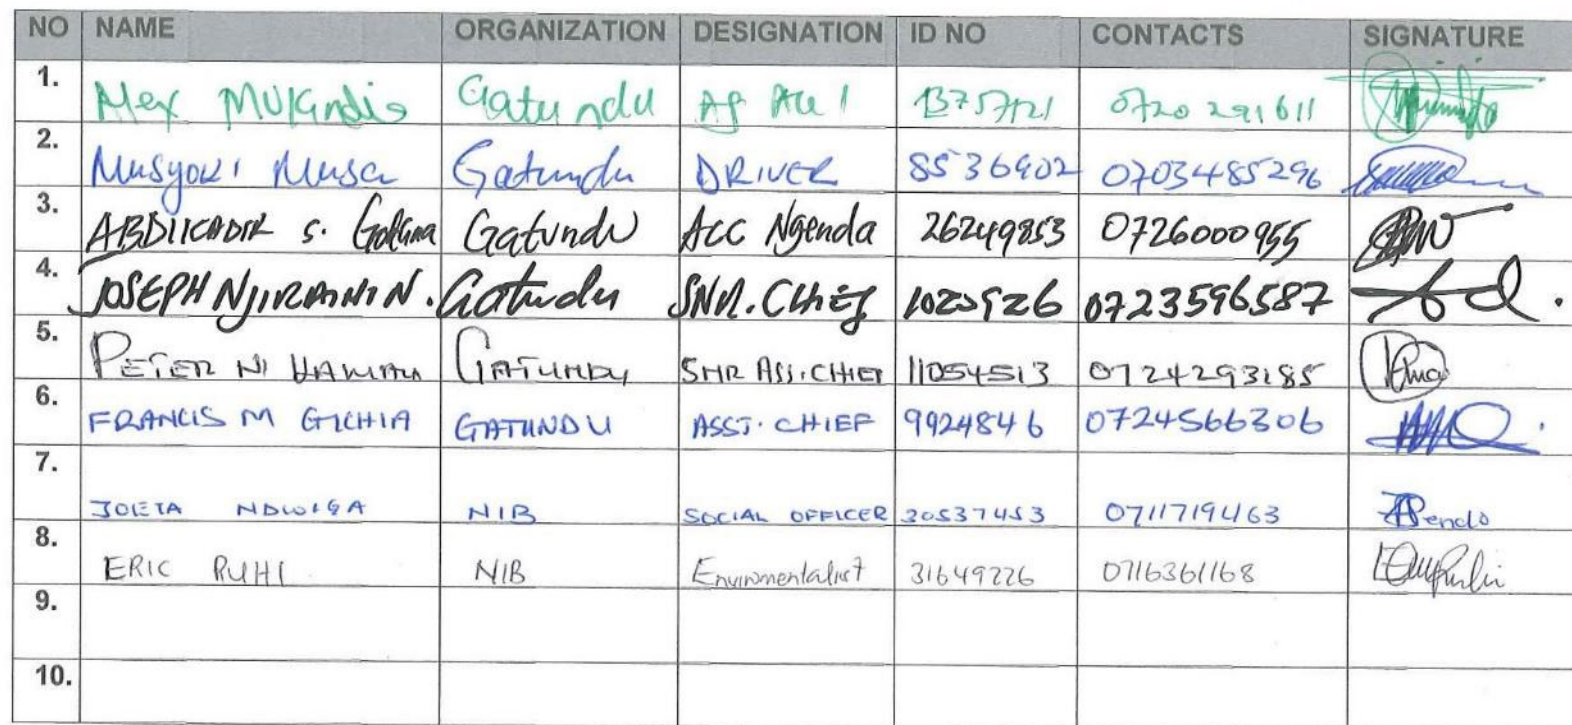 NO NAME ORGANIZATION DESIGNATION ID NO CONTACTS SIGNATURE
1. Alex Gatundu 0720 291611
2. Musyoki Musa Gatundu DRIVER 8536902 0703485296
3. ABDIKADIR S. Gatundu ACC Ngenda 26249853 0726000955
4. JOSEPH Gatundu SNR. CHIEF 0723596587
5. PETER GATUNDU SNR ASS. CHIEF 11054513 0724293185
6. FRANCIS M GICHIA GATUNDU ASST. CHIEF 9924846 0724566306
7. NDWIGA NIB SOCIAL OFFICER 30537453 0711719463
8. ERIC RUHI NIB Environmentalist 31649226 0716361168
9.
10.